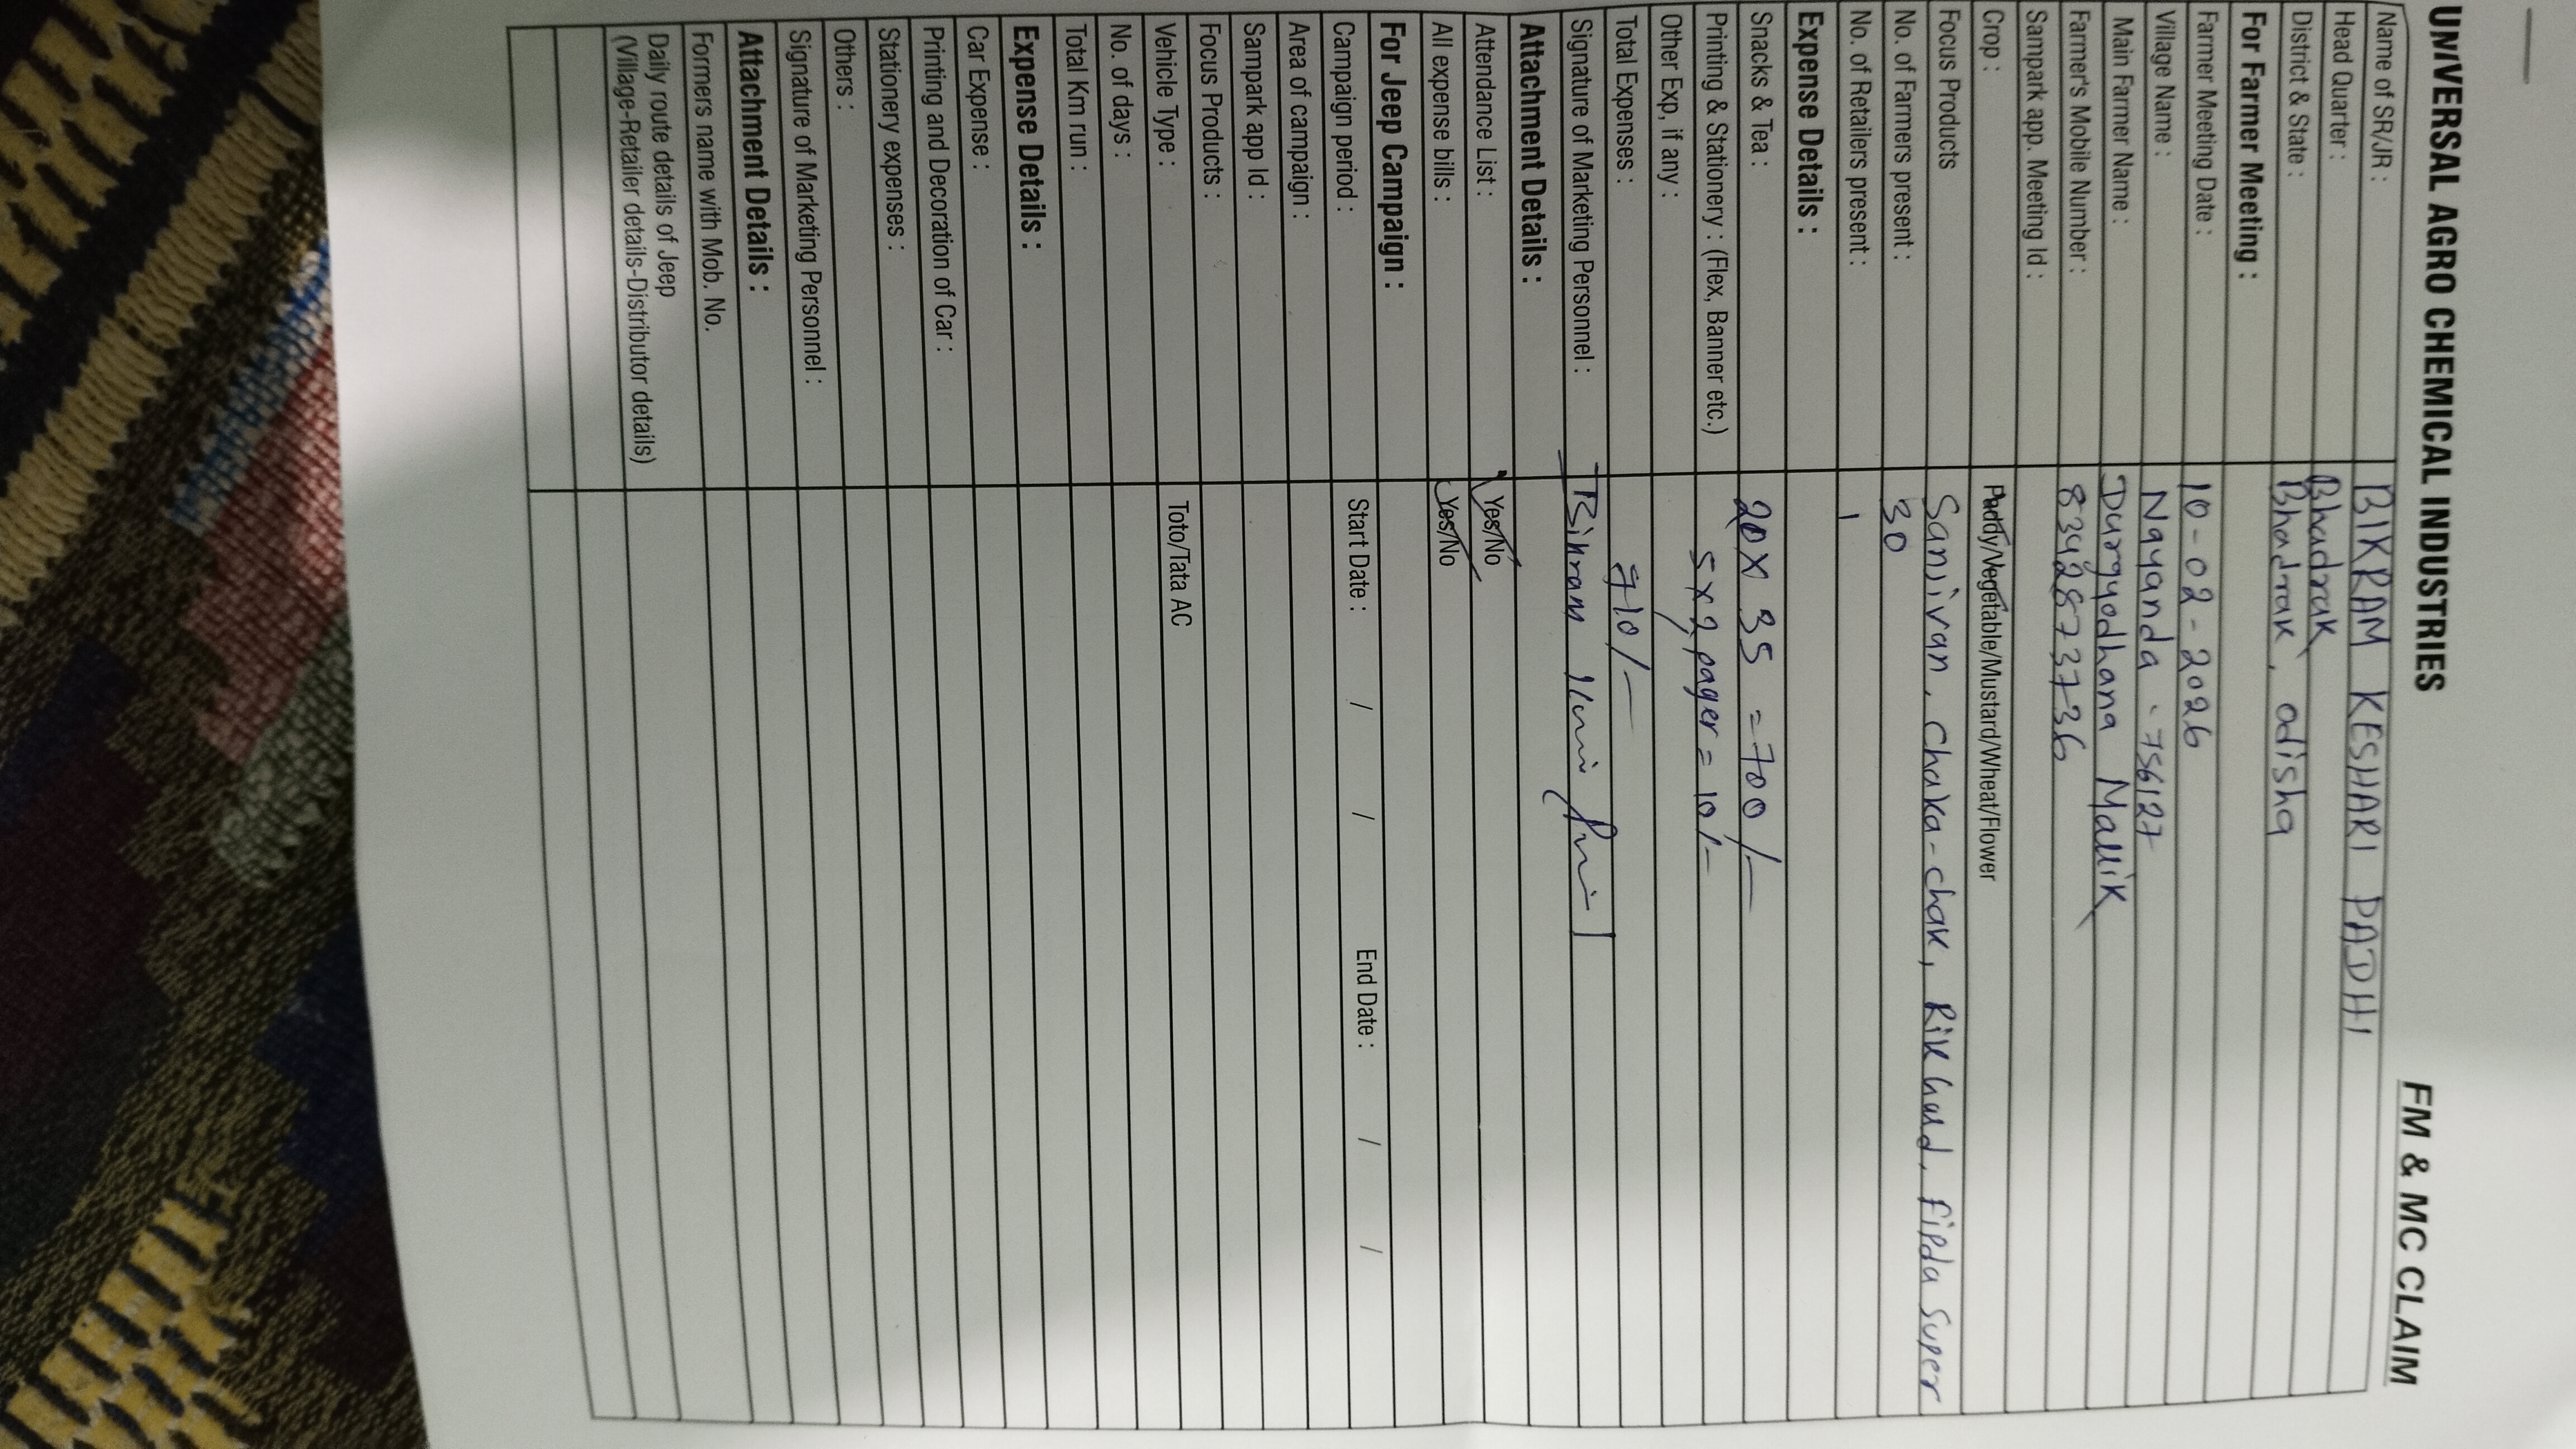 UNIVERSAL AGRO CHEMICAL INDUSTRIES FM & MC CLAIM
Name of SR/JR : BIKRAM KESHARI PADHI
Head Quarter : Bhadrak
District & State : Bhadrak, odisha
For Farmer Meeting :
Farmer Meeting Date : 10-02-2026
Village Name : Nayanda - 756127
Main Farmer Name : Duryyodhana Mallik
Farmer's Mobile Number : 8342873736
Sampark app. Meeting Id :
Crop : Paddy/Vegetable/Mustard/Wheat/Flower
Focus Products Sanjivan, Chaka-chak, Rik hard, fipda super
No. of Farmers present : 30
No. of Retailers present : 1
Expense Details :
Snacks & Tea : 20 X 35 = 700/-
Printing & Stationery : (Flex, Banner etc.) 5 x 2 pager = 10/-
Other Exp, if any :
Total Expenses : 710/-
Signature of Marketing Personnel : Bikram
Attachment Details :
Attendance List : Yes/No
All expense bills : Yes/No
For Jeep Campaign :
Campaign period : Start Date : / / End Date : / /
Area of campaign :
Sampark app Id :
Focus Products :
Vehicle Type : Toto/Tata AC
No. of days :
Total Km run :
Expense Details :
Car Expense :
Printing and Decoration of Car :
Stationery expenses :
Others :
Signature of Marketing Personnel :
Attachment Details :
Formers name with Mob. No.
Daily route details of Jeep
(Village-Retailer details-Distributor details)